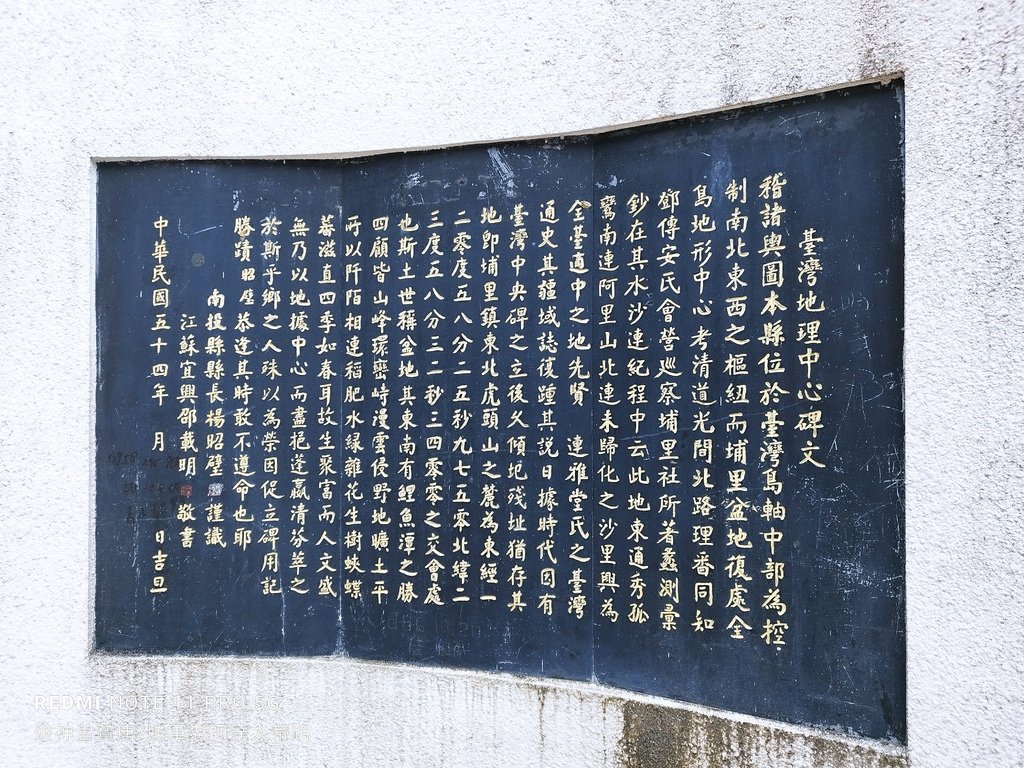 臺灣地理中心碑文
稽諸輿圖本縣位於臺灣島軸中部為控
制南北東西之樞紐而埔里盆地復處全
島地形中心考清道光間北路理番同知
鄧傳安氏會營巡察埔里社所著蠡測彙
鈔在其水沙連紀程中云此地東通秀孤
鸞南連阿里山北連未歸化之沙里興為
全臺適中之地先賢 連雅堂氏之臺灣
通史其疆域誌復踵其說日據時代因有
臺灣中央碑之立後久傾圮殘址猶存其
地即埔里鎮東北虎頭山之麓為東經一
二零度五八分二五秒九七五零北緯二
三度五八分三二秒三四零零之交會處
也斯土世稱盆地其東南有鯉魚潭之勝
四顧皆山峰環巒峙漫雲侵野地曠土平
阡陌相連稻肥水綠雜花生樹蛺蝶
蕃滋直四季如春耳故生聚富而人文盛
無乃以地據中心而盡挹蓬瀛清芬萃之
於斯乎鄉之人殊以為榮因促立碑用記
勝蹟昭壁恭逢其時敢不遵命也耶
南投縣縣長楊昭璧謹識
江蘇宜興邵載明敬書
中華民國五十四年 月 日吉旦
REDMI NOTE 11 PRO 5G